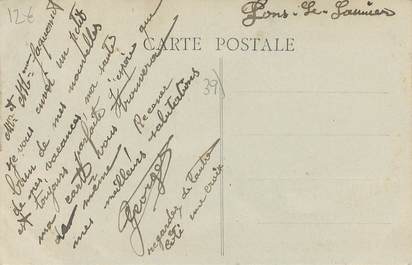 12€
Lons-le-Saunier
CARTE POSTALE
39)
Mr et Mme Jaquemet
Je vous envoi un petit
brin de mes nouvelles
de mes vacances, ma santé
est toujours parfaite J'espère que
ma carte vous trouvera
de même Recever
mes meilleurs salutations
Georges
regarder de l'autre
côté une croix